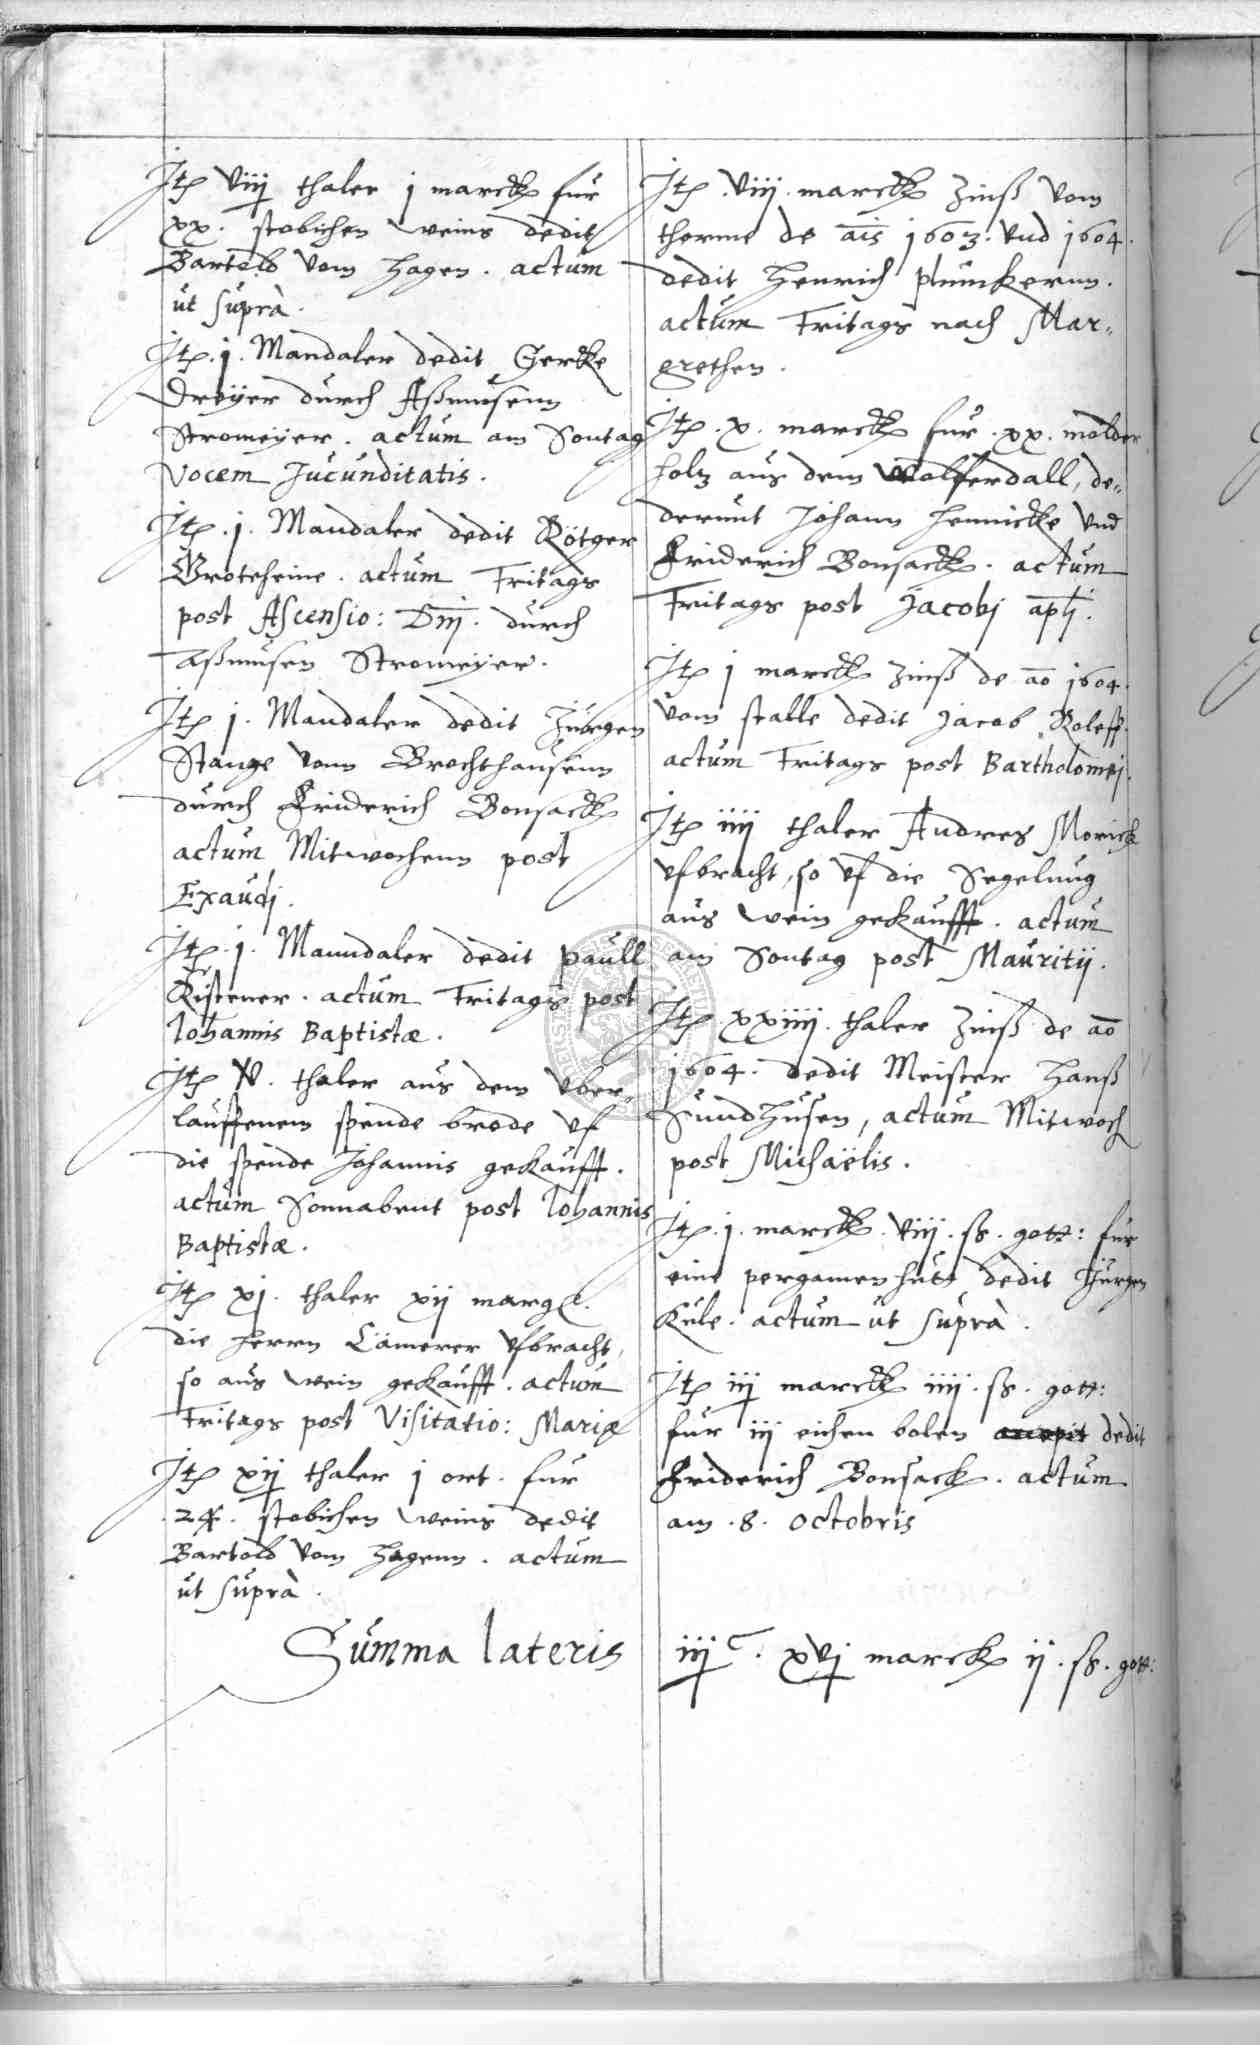 Itē viiij thaler j marck fur
xx. stobichen weins dedit
Bartold vom Hagen. actum
ut suprà.
Itē. j. Mandaler dedit Gercke
Dreÿer durch Aßmusenn
Stromeÿer. actum am Sontag
Vocem Jucunditatis.
Itē. j. Mandaler dedit Rötger
Groteheine. actum Fritags
post Ascensio: Dnj. durch
Aßmusen Stromeÿer.
Itē j. Mandaler dedit Jürgen
Stange vonn Brochthausenn
durch Friderich Bonsack
actum Mitwochenn post
Exaudj.
Itē. j. Manndaler dedit Paull
Küstener. actum Fritags post
Iohannis Baptistæ.
Itē V. thaler aus dem vber-
lauffenem spende brode vf
die spende Johannis gekaufft.
actum Sonnabent post Iohannis
Baptistæ.
Itē xj. thaler xij margl.
die Herrn Cämerer vfbracht,
so aus wein gekaufft. actum
Fritags post Visitatio: Mariæ
Itē xij thaler j ort. fur
.24. stobichen weins dedit
Bartold vom Hagenn. actum
ut suprà.
Itē. viij. marck zinß vom
thorme de aīs 1603. vnd 1604.
dedit Henrich plunckenn.
actum Fritags nach Mar-
grethen.
Itē. x. marck fur. xx. molder
holtz aus dem Wolfferdall, de-
derunt Johann Hennicke vnd
Friderich Bonsack. actum
Fritags post Jacobj aplj.
Itē j marck zinß de aō 1604.
vom stalle dedit Jacob Roleff.
actum Fritags post Bartholomej.
Itē iiij thaler Andres Morick
vfbracht, so vf die Segelung
aus wein gekaufft. actum
am Sontag post Mauritij.
Itē xxiiij. thaler zinß de aō
1604. dedit Meister Hanß
Sundhusen, actum Mitwoch
post Michaëlis.
Itē. j. marck. viij. ß. gott: fur
eine pergamen hut dedit Jürgen
Kule. actum ut suprà.
Itē iij marck iiij. ß. gott:
fur iij eichen bolen accepit dedit
Friderich Bonsack. actum
am. 8. octobris
Summa lateris iij c. xvj marck ij. ß. gott: